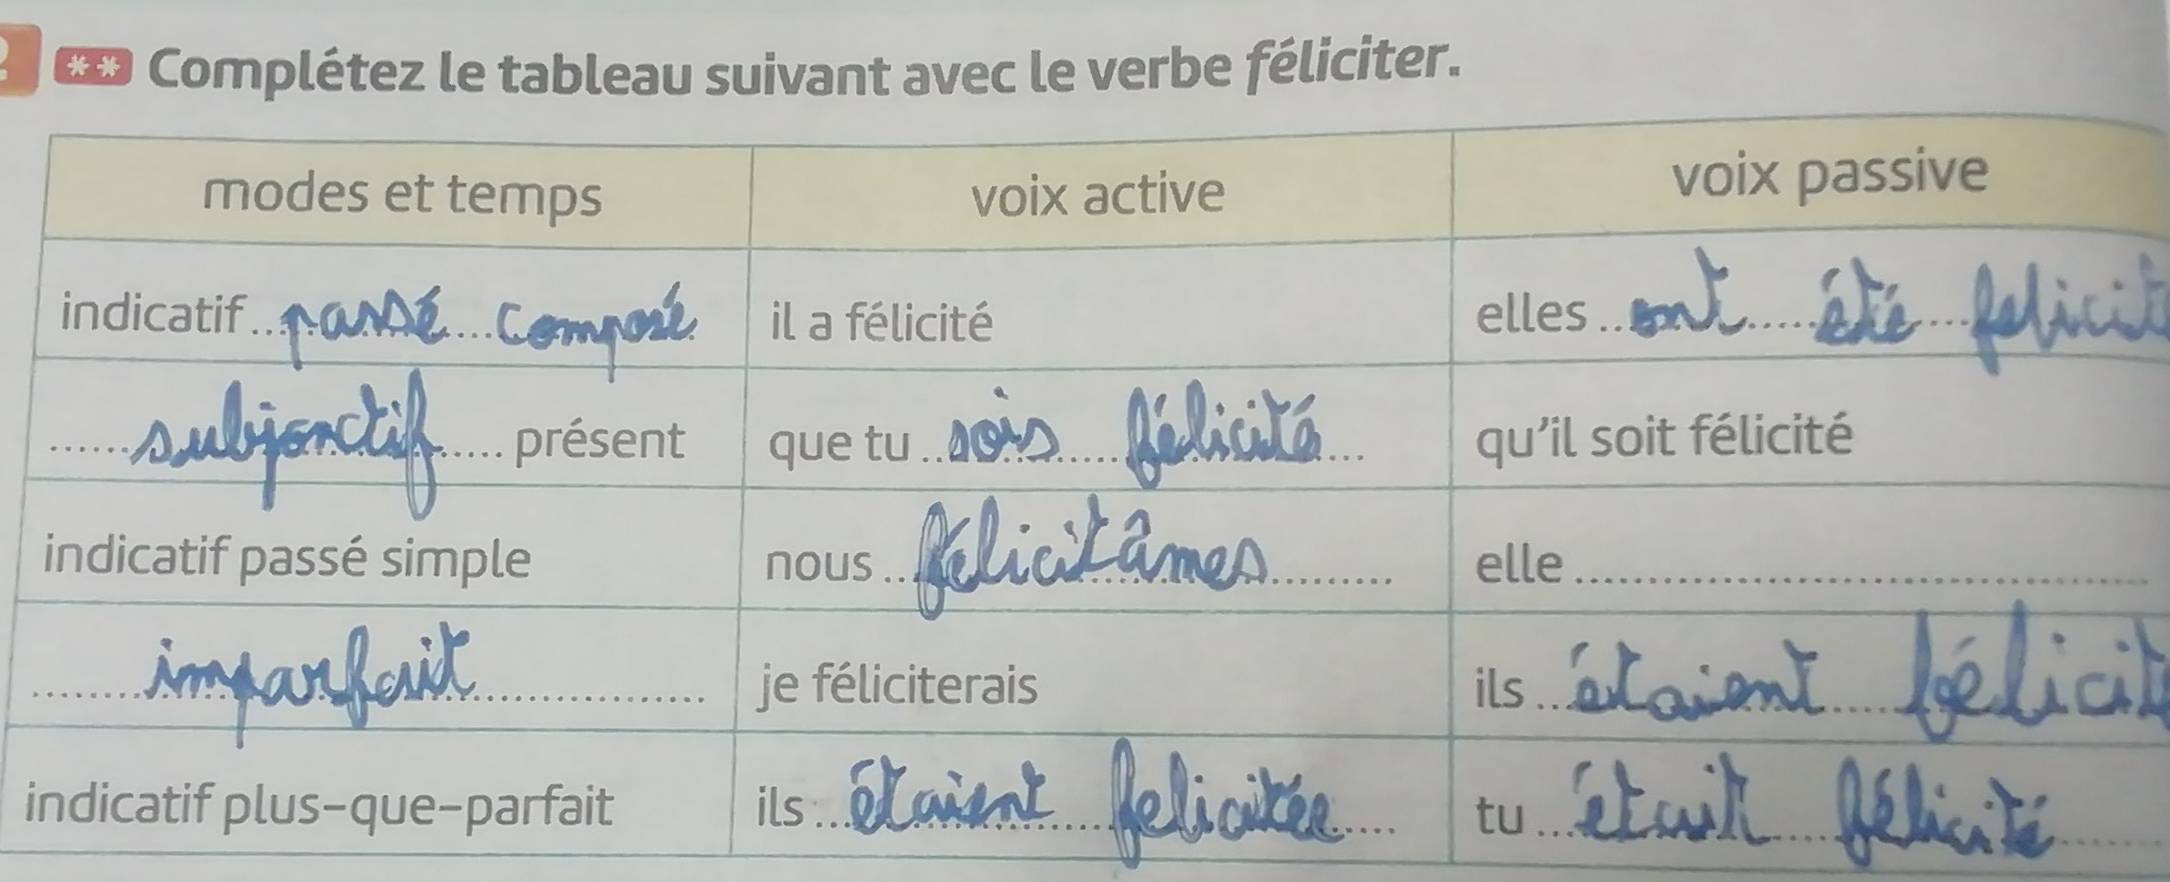 ** Complétez le tableau suivant avec le verbe féliciter.
modes et temps voix active voix passive
indicatif passé composé il a félicité elles ont été felicit
subjonctif présent que tu sois félicité qu'il soit félicité
indicatif passé simple nous félicitâmes elle
imparfait je féliciterais ils étaient félicit
indicatif plus-que-parfait ils étaient felicitée tu étuit félicité